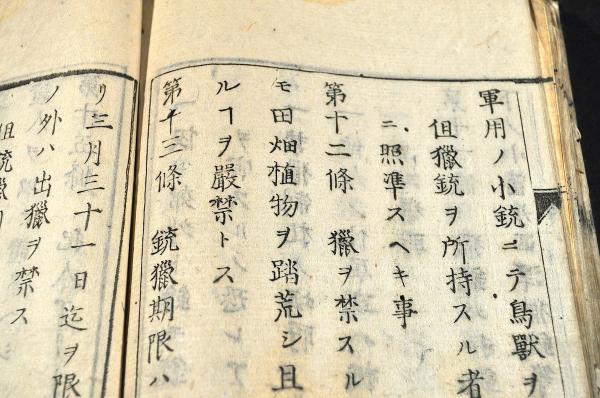 軍用ノ小銃ニテ鳥獸ヲ
但獵銃ヲ所持スル者
ニ照準スヘキ事
第十二條 獵ヲ禁スル
モ田畑植物ヲ踏荒シ且
ルヿヲ嚴禁トス
第十三條 銃獵期限ハ
リ三月三十一日迄ヲ限
ノ外ハ出獵ヲ禁ス
但銃獵